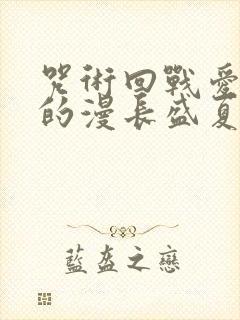 咒術回戰愛
的漫長盛夏
藍盔之戀